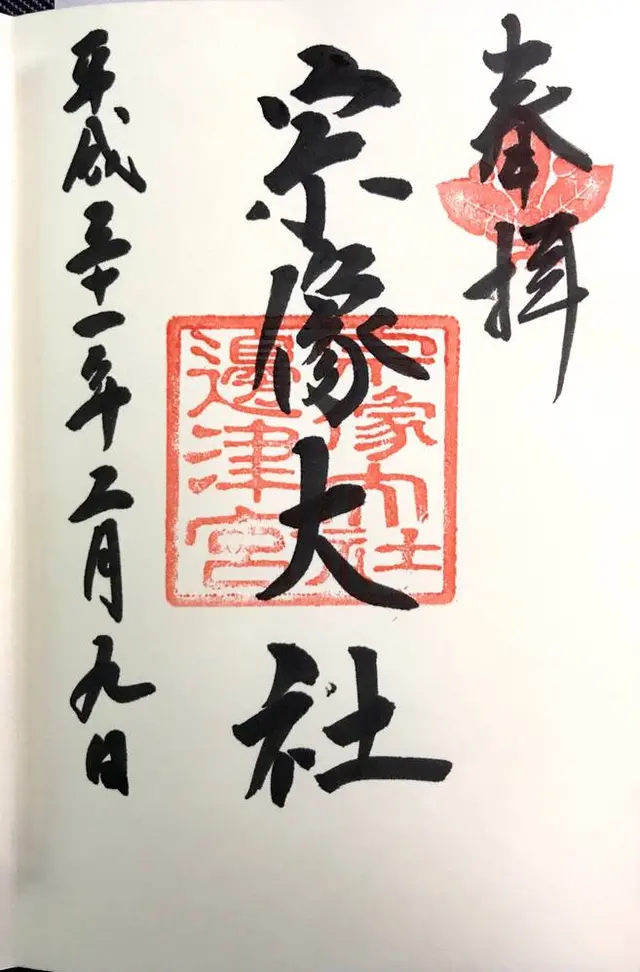 奉拝
宗像大社
宗像大社
邊津宮
平成三十一年二月九日